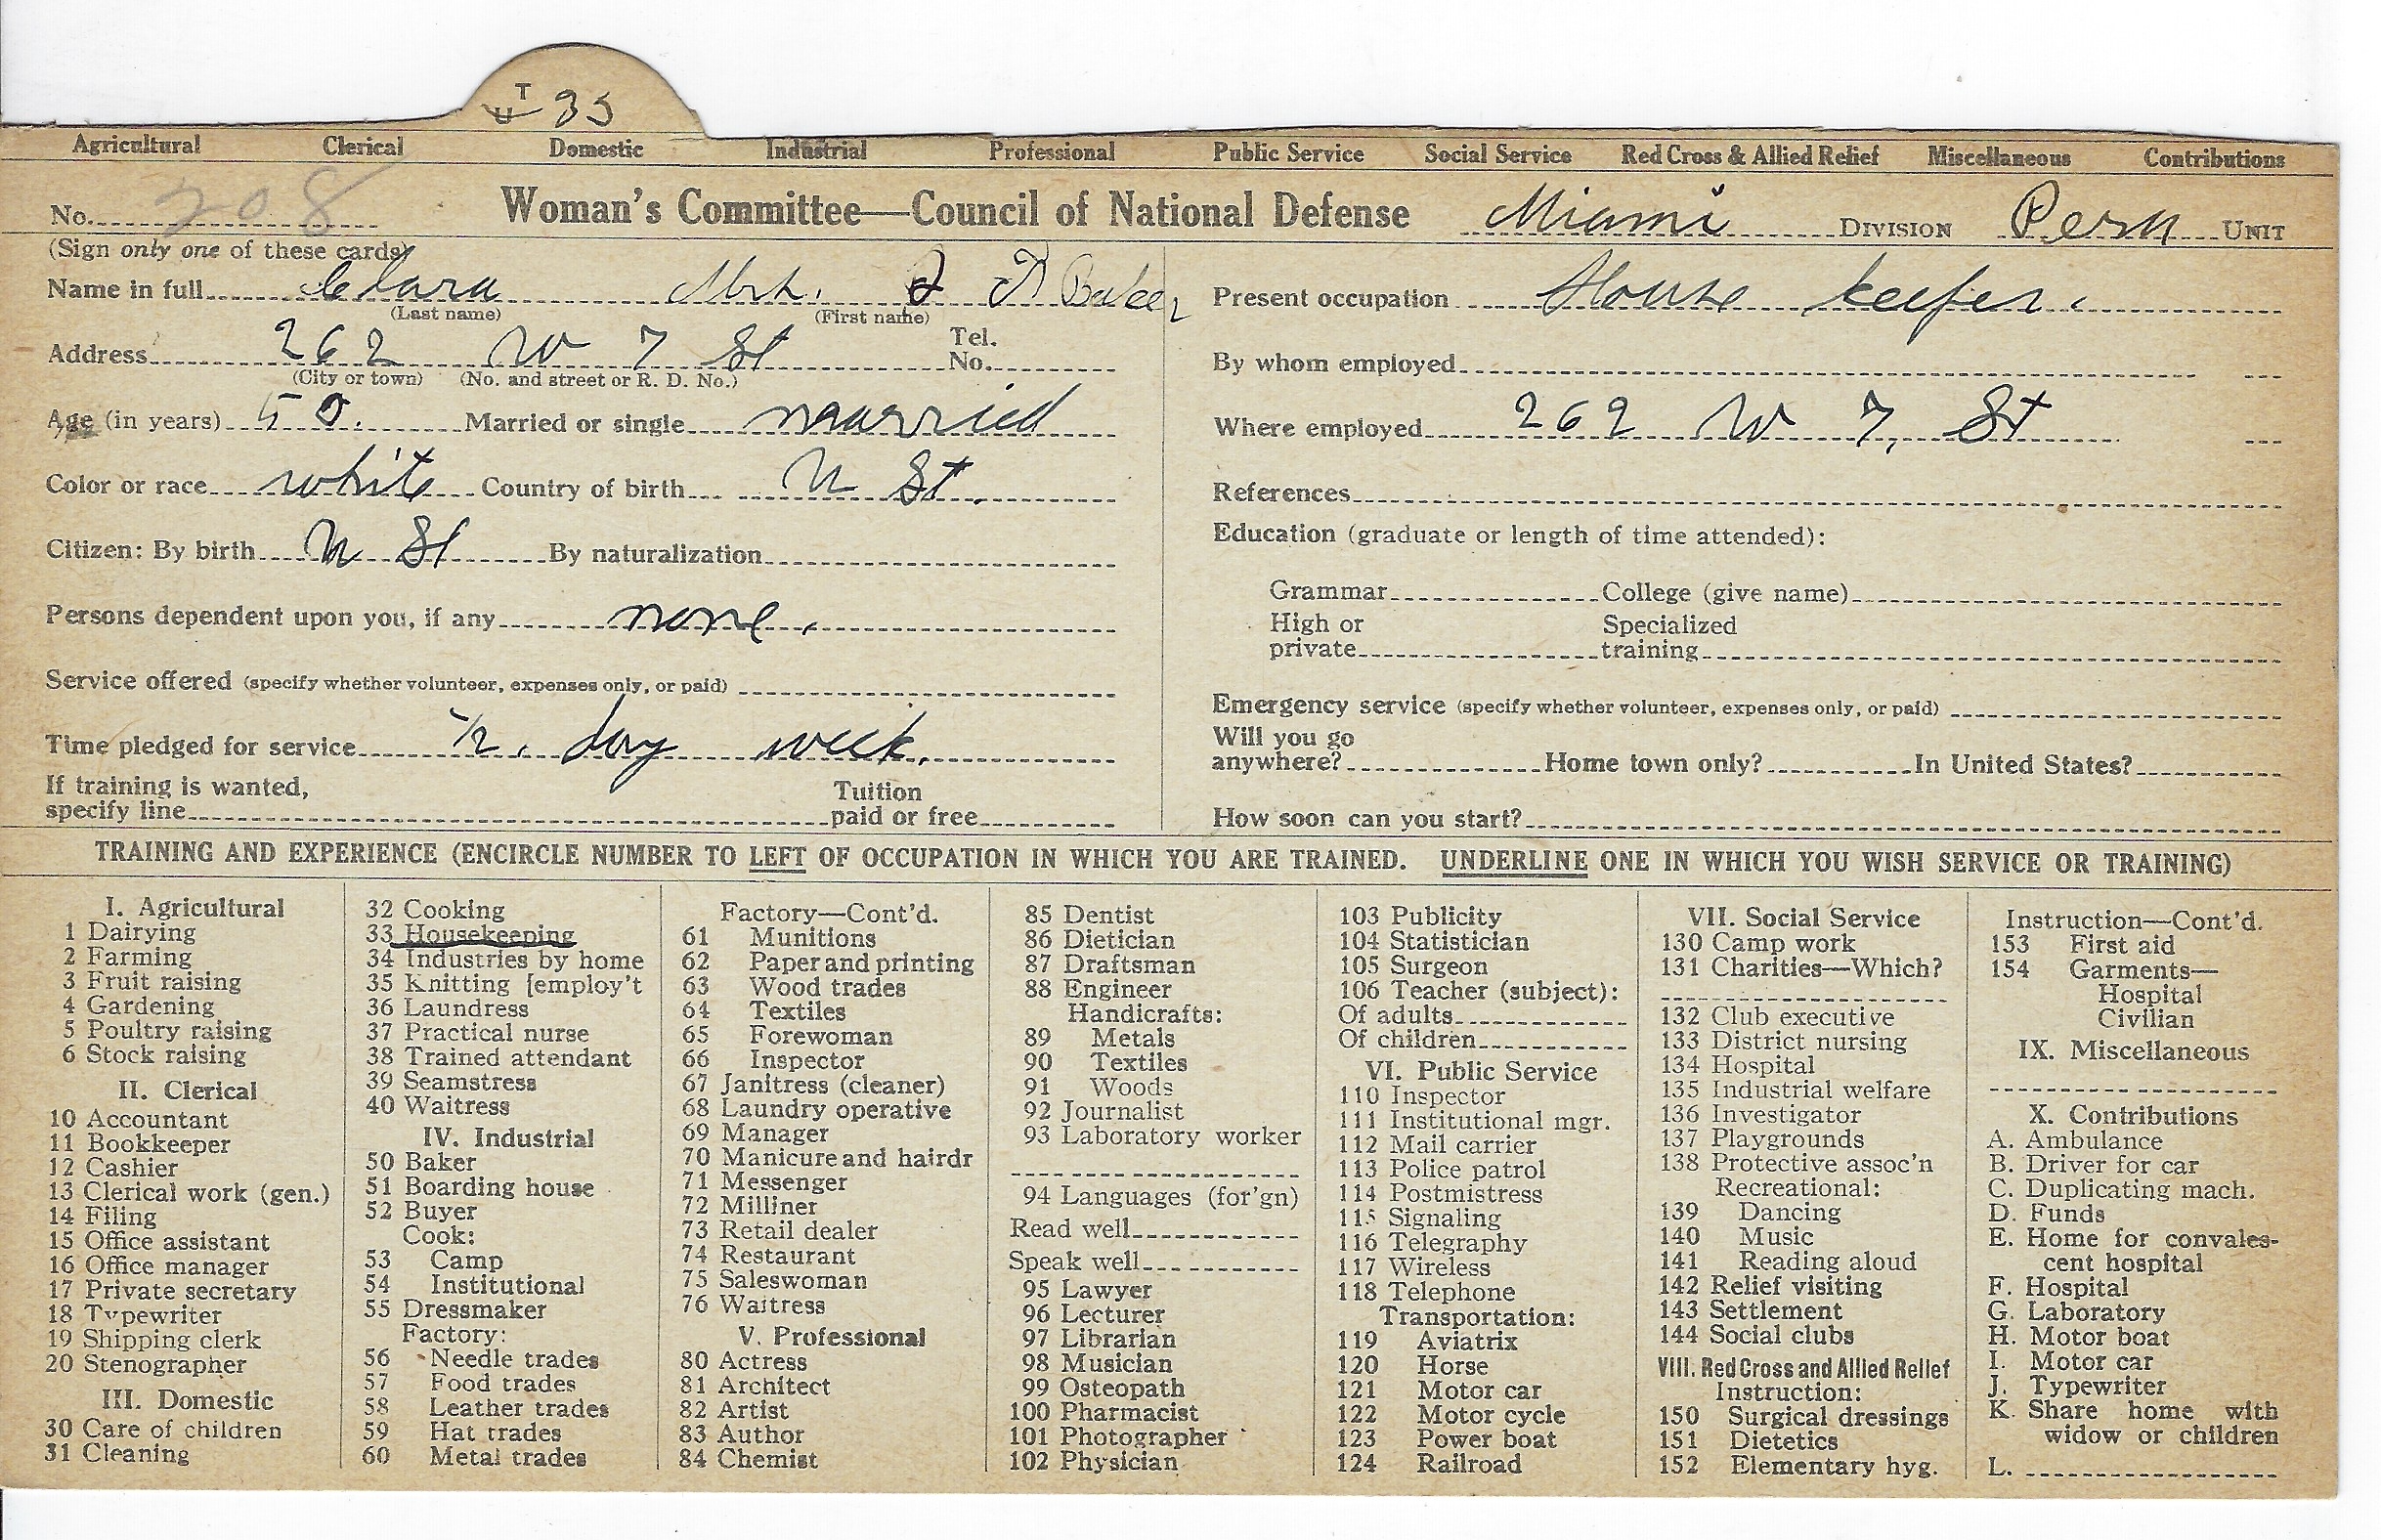 T 35
Agricultural Clerical Domestic Industrial Professional Public Service Social Service Red Cross & Allied Relief Miscellaneous Contributions
No. 208 Woman's Committee—Council of National Defense Miami DIVISION Peru UNIT
(Sign only one of these cards)
Name in full Clara Mrs. D Baker
(Last name) (First name)
Address 262 W 7 St Tel. No.
(City or town) (No. and street or R. D. No.)
Age (in years) 50. Married or single married
Color or race white Country of birth U St.
Citizen: By birth U St By naturalization
Persons dependent upon you, if any none.
Service offered (specify whether volunteer, expenses only, or paid)
Time pledged for service 1/2. day week.
If training is wanted, specify line Tuition paid or free
Present occupation House keeper.
By whom employed
Where employed 262 W 7, St
References
Education (graduate or length of time attended):
Grammar College (give name)
High or private Specialized training
Emergency service (specify whether volunteer, expenses only, or paid)
Will you go anywhere? Home town only? In United States?
How soon can you start?
TRAINING AND EXPERIENCE (ENCIRCLE NUMBER TO LEFT OF OCCUPATION IN WHICH YOU ARE TRAINED. UNDERLINE ONE IN WHICH YOU WISH SERVICE OR TRAINING)
I. Agricultural
1 Dairying
2 Farming
3 Fruit raising
4 Gardening
5 Poultry raising
6 Stock raising
II. Clerical
10 Accountant
11 Bookkeeper
12 Cashier
13 Clerical work (gen.)
14 Filing
15 Office assistant
16 Office manager
17 Private secretary
18 Typewriter
19 Shipping clerk
20 Stenographer
III. Domestic
30 Care of children
31 Cleaning
32 Cooking
33 Housekeeping
34 Industries by home
35 Knitting [employ't
36 Laundress
37 Practical nurse
38 Trained attendant
39 Seamstress
40 Waitress
IV. Industrial
50 Baker
51 Boarding house
52 Buyer
Cook:
53 Camp
54 Institutional
55 Dressmaker
Factory:
56 Needle trades
57 Food trades
58 Leather trades
59 Hat trades
60 Metal trades
Factory—Cont'd.
61 Munitions
62 Paper and printing
63 Wood trades
64 Textiles
65 Forewoman
66 Inspector
67 Janitress (cleaner)
68 Laundry operative
69 Manager
70 Manicure and hairdr
71 Messenger
72 Milliner
73 Retail dealer
74 Restaurant
75 Saleswoman
76 Waitress
V. Professional
80 Actress
81 Architect
82 Artist
83 Author
84 Chemist
85 Dentist
86 Dietician
87 Draftsman
88 Engineer
Handicrafts:
89 Metals
90 Textiles
91 Woods
92 Journalist
93 Laboratory worker
94 Languages (for'gn)
Read well
Speak well
95 Lawyer
96 Lecturer
97 Librarian
98 Musician
99 Osteopath
100 Pharmacist
101 Photographer
102 Physician
103 Publicity
104 Statistician
105 Surgeon
106 Teacher (subject):
Of adults
Of children
VI. Public Service
110 Inspector
111 Institutional mgr.
112 Mail carrier
113 Police patrol
114 Postmistress
115 Signaling
116 Telegraphy
117 Wireless
118 Telephone
Transportation:
119 Aviatrix
120 Horse
121 Motor car
122 Motor cycle
123 Power boat
124 Railroad
VII. Social Service
130 Camp work
131 Charities—Which?
132 Club executive
133 District nursing
134 Hospital
135 Industrial welfare
136 Investigator
137 Playgrounds
138 Protective assoc'n
Recreational:
139 Dancing
140 Music
141 Reading aloud
142 Relief visiting
143 Settlement
144 Social clubs
VIII. Red Cross and Allied Relief
Instruction:
150 Surgical dressings
151 Dietetics
152 Elementary hyg.
Instruction—Cont'd.
153 First aid
154 Garments—
Hospital
Civilian
IX. Miscellaneous
X. Contributions
A. Ambulance
B. Driver for car
C. Duplicating mach.
D. Funds
E. Home for convales-
cent hospital
F. Hospital
G. Laboratory
H. Motor boat
I. Motor car
J. Typewriter
K. Share home with
widow or children
L.